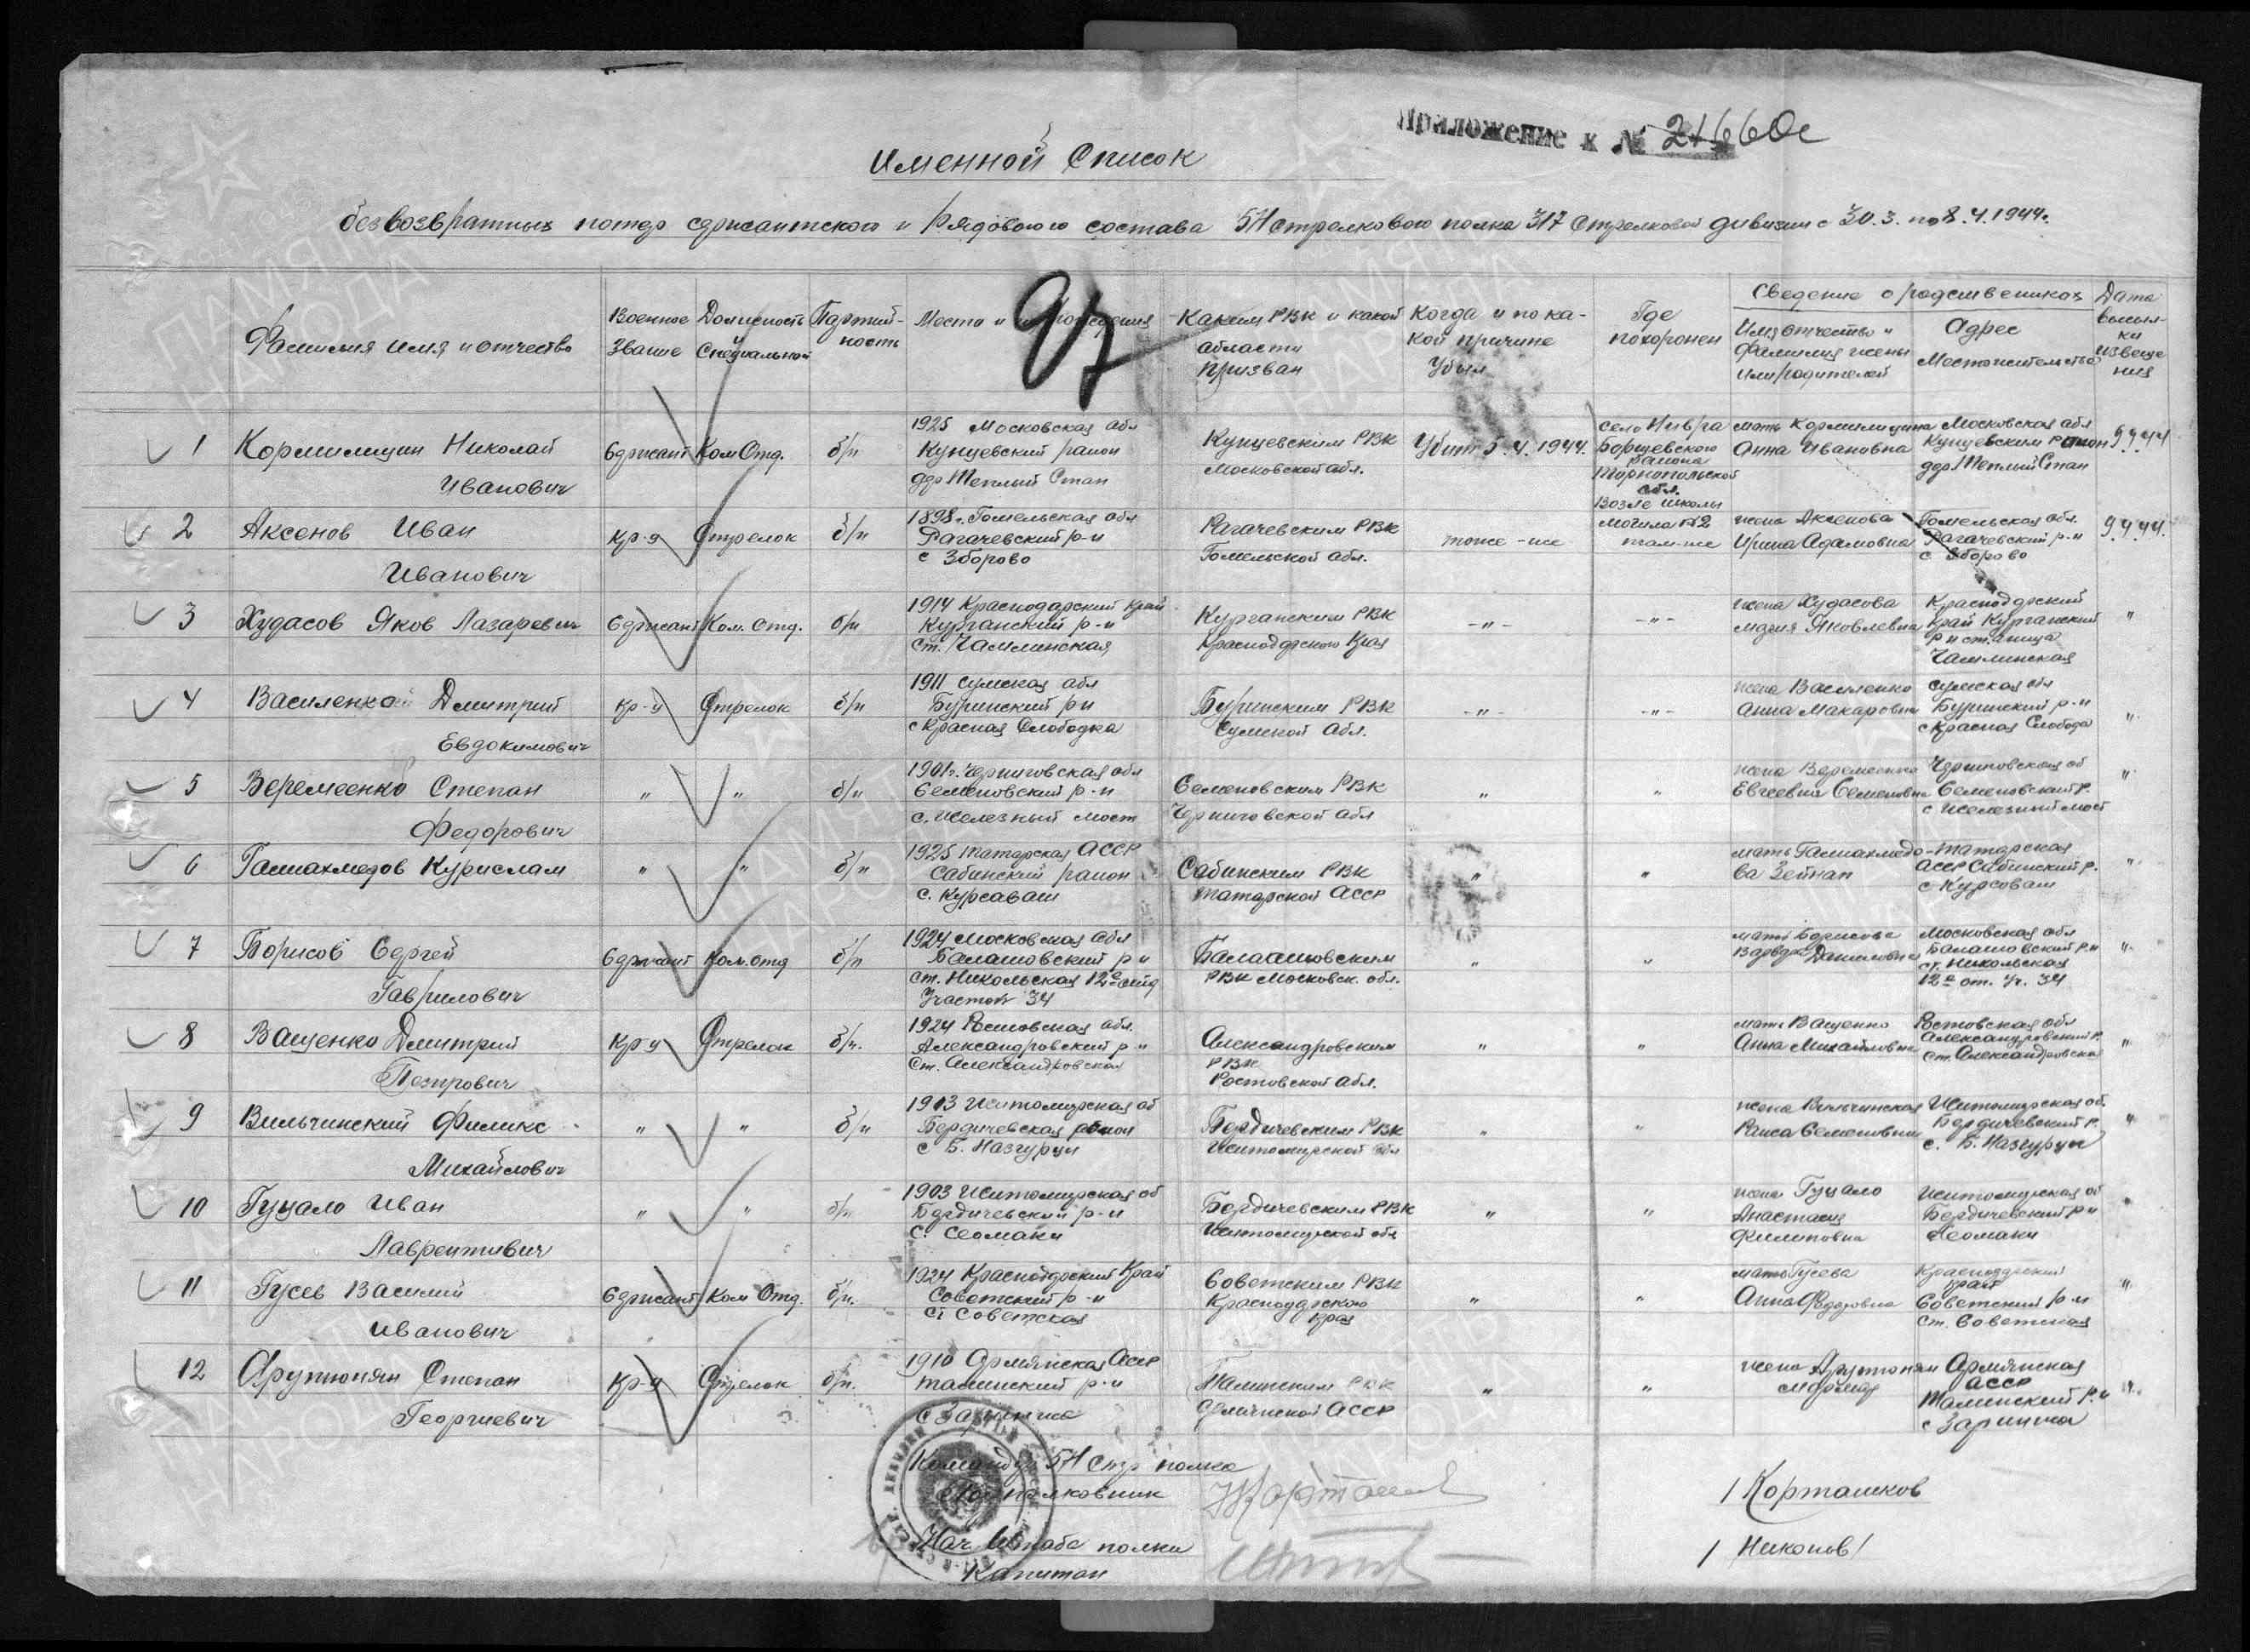 Приложение к № 21660с
Именной Список
безвозвратных потерь сержантского и рядового состава 571 стрелкового полка 317 стрелковой дивизии с 30.3. по 8.4.1944г.
97
Фамилия имя и отчество
Военное звание
Должность и специальность
Партийность
Каким РВК и какой области призван
Когда и по какой причине убыл
Где похоронен
Сведение о родственниках
Имя отчество и фамилия жены или родителей
Адрес Местожительство
Дата высылки извещения
1 Кормилицин Николай Иванович
Сержант Ком Отд. б/п
1925 Московская обл Кунцевский район дер Теплый Стан
Кунцевским РВК Московской обл.
Убит 5.4.1944.
Борщевского района Тарнопольской обл. возле школы могила №2
мать Кормилицина Анна Ивановна
Московская обл Кунцевским район дер Теплый Стан
9.4.44
2 Аксенов Иван Иванович
кр-ц Стрелок б/п
1898г. Гомельская обл Рагачевский р-н с Зборово
Рагачевским РВК Гомельской обл.
тоже-же
там-же
жена Аксенова Ирина Адамовна
Гомельская обл. Рагачевский р-н с Зборово
9.4.44.
3 Худасов Яков Лазаревич
Сержант Ком. Отд. б/п
1914 Краснодарский край Курганский р-н ст. Чамлинская
Курганским РВК Краснодарского Края
-"-
-"-
жена Худасова Мария Яковлевна
Краснодарский Край Курганский р-н станица Чамлинская
"
4 Василенко Дмитрий Евдокимович
кр-ц Стрелок б/п
1911 Сумская обл Буринский р-н с Красная Слободка
Буринским РВК Сумской обл.
-"-
-"-
жена Василенко Анна Макаровна
Сумская обл Буринский р-н с Красная Слобода
"
5 Веремеенко Степан Федорович
" " б/п
1901г. Черниговская обл Семеновский р-н с. Железный мост
Семеновским РВК Черниговской обл
"
"
жена Веремеенко Семеновна
Черниговская об Семеновский р. с Железный мост
"
6 Галиахмедов Курислам
" " б/п
1925 Татарская АССР Сабинский район с. Курсаваш
Сабинским РВК Татарской АССР
"
"
мать Галиахмедова Зейнап
Татарская АССР Сабинский р. с Курсоваш
"
7 Борисов Сергей Гаврилович
Сержант Ком. отд б/п
1924 Московская обл Балашовский р-н ст. Никольская 12е Участок 34
Балашовским РВК Московск. обл.
"
"
мать Борисова Варвара Даниловна
Московская обл Балашовский р-н ст. Никольская 12е от. Уч. 34
"
8 Ващенко Дмитрий Петрович
кр-ц Стрелок б/п.
1924 Ростовская обл. Александровский р-н Ст. Александровская
Александровским РВК Ростовской обл.
"
"
мать Ващенко Анна Михайловна
Ростовская обл Александровский р. ст. Александровская
"
9 Вильчинский Филикс Михайлович
" " б/п
1913 Житомирская об Бердичевская район с Б. Назгурци
Бердичевским РВК Житомирской обл
"
"
жена Вильчинская Раиса Семеновна
Житомирская об. Бердичевский р. с. Б. Назгурци
"
10 Гуцало Иван Лаврентивич
" " б/п
1903 Житомирская об Бердичевский р-н с. Сеомаки
Бердичевским РВК Житомирской обл
"
"
жена Гуцало Анастасия Филиповна
Житомирская об Бердичевский р-н Сеомаки
"
11 Гусев Василий Иванович
Сержант Ком Отд. б/п.
1924 Краснодарский Край Советский р-н Ст Советская
Советским РВК Краснодарского края
"
"
мать Гусева Анна Федоровна
Краснодарский край Советский р-н ст. Советская
"
12 Арутюнян Степан Георгиевич
кр-ц Стрелок б/п.
1910 Армянская АССР Талинский р-н
Талинским РВК Армянской АССР
"
"
жена Арутюнян
Армянская АССР Талинский р-н
"
Командир 571 Стр полка
Подполковник
/ Корташков
Нач Штаба полка
Капитан
/ Никонов /
ПАМЯТЬ НАРОДА